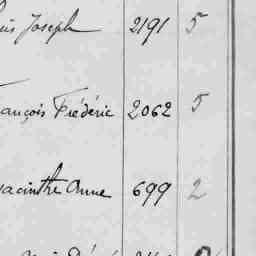 Joseph 2191 5
François Frédéric 2062 5
Hyacinthe Anne 699 2